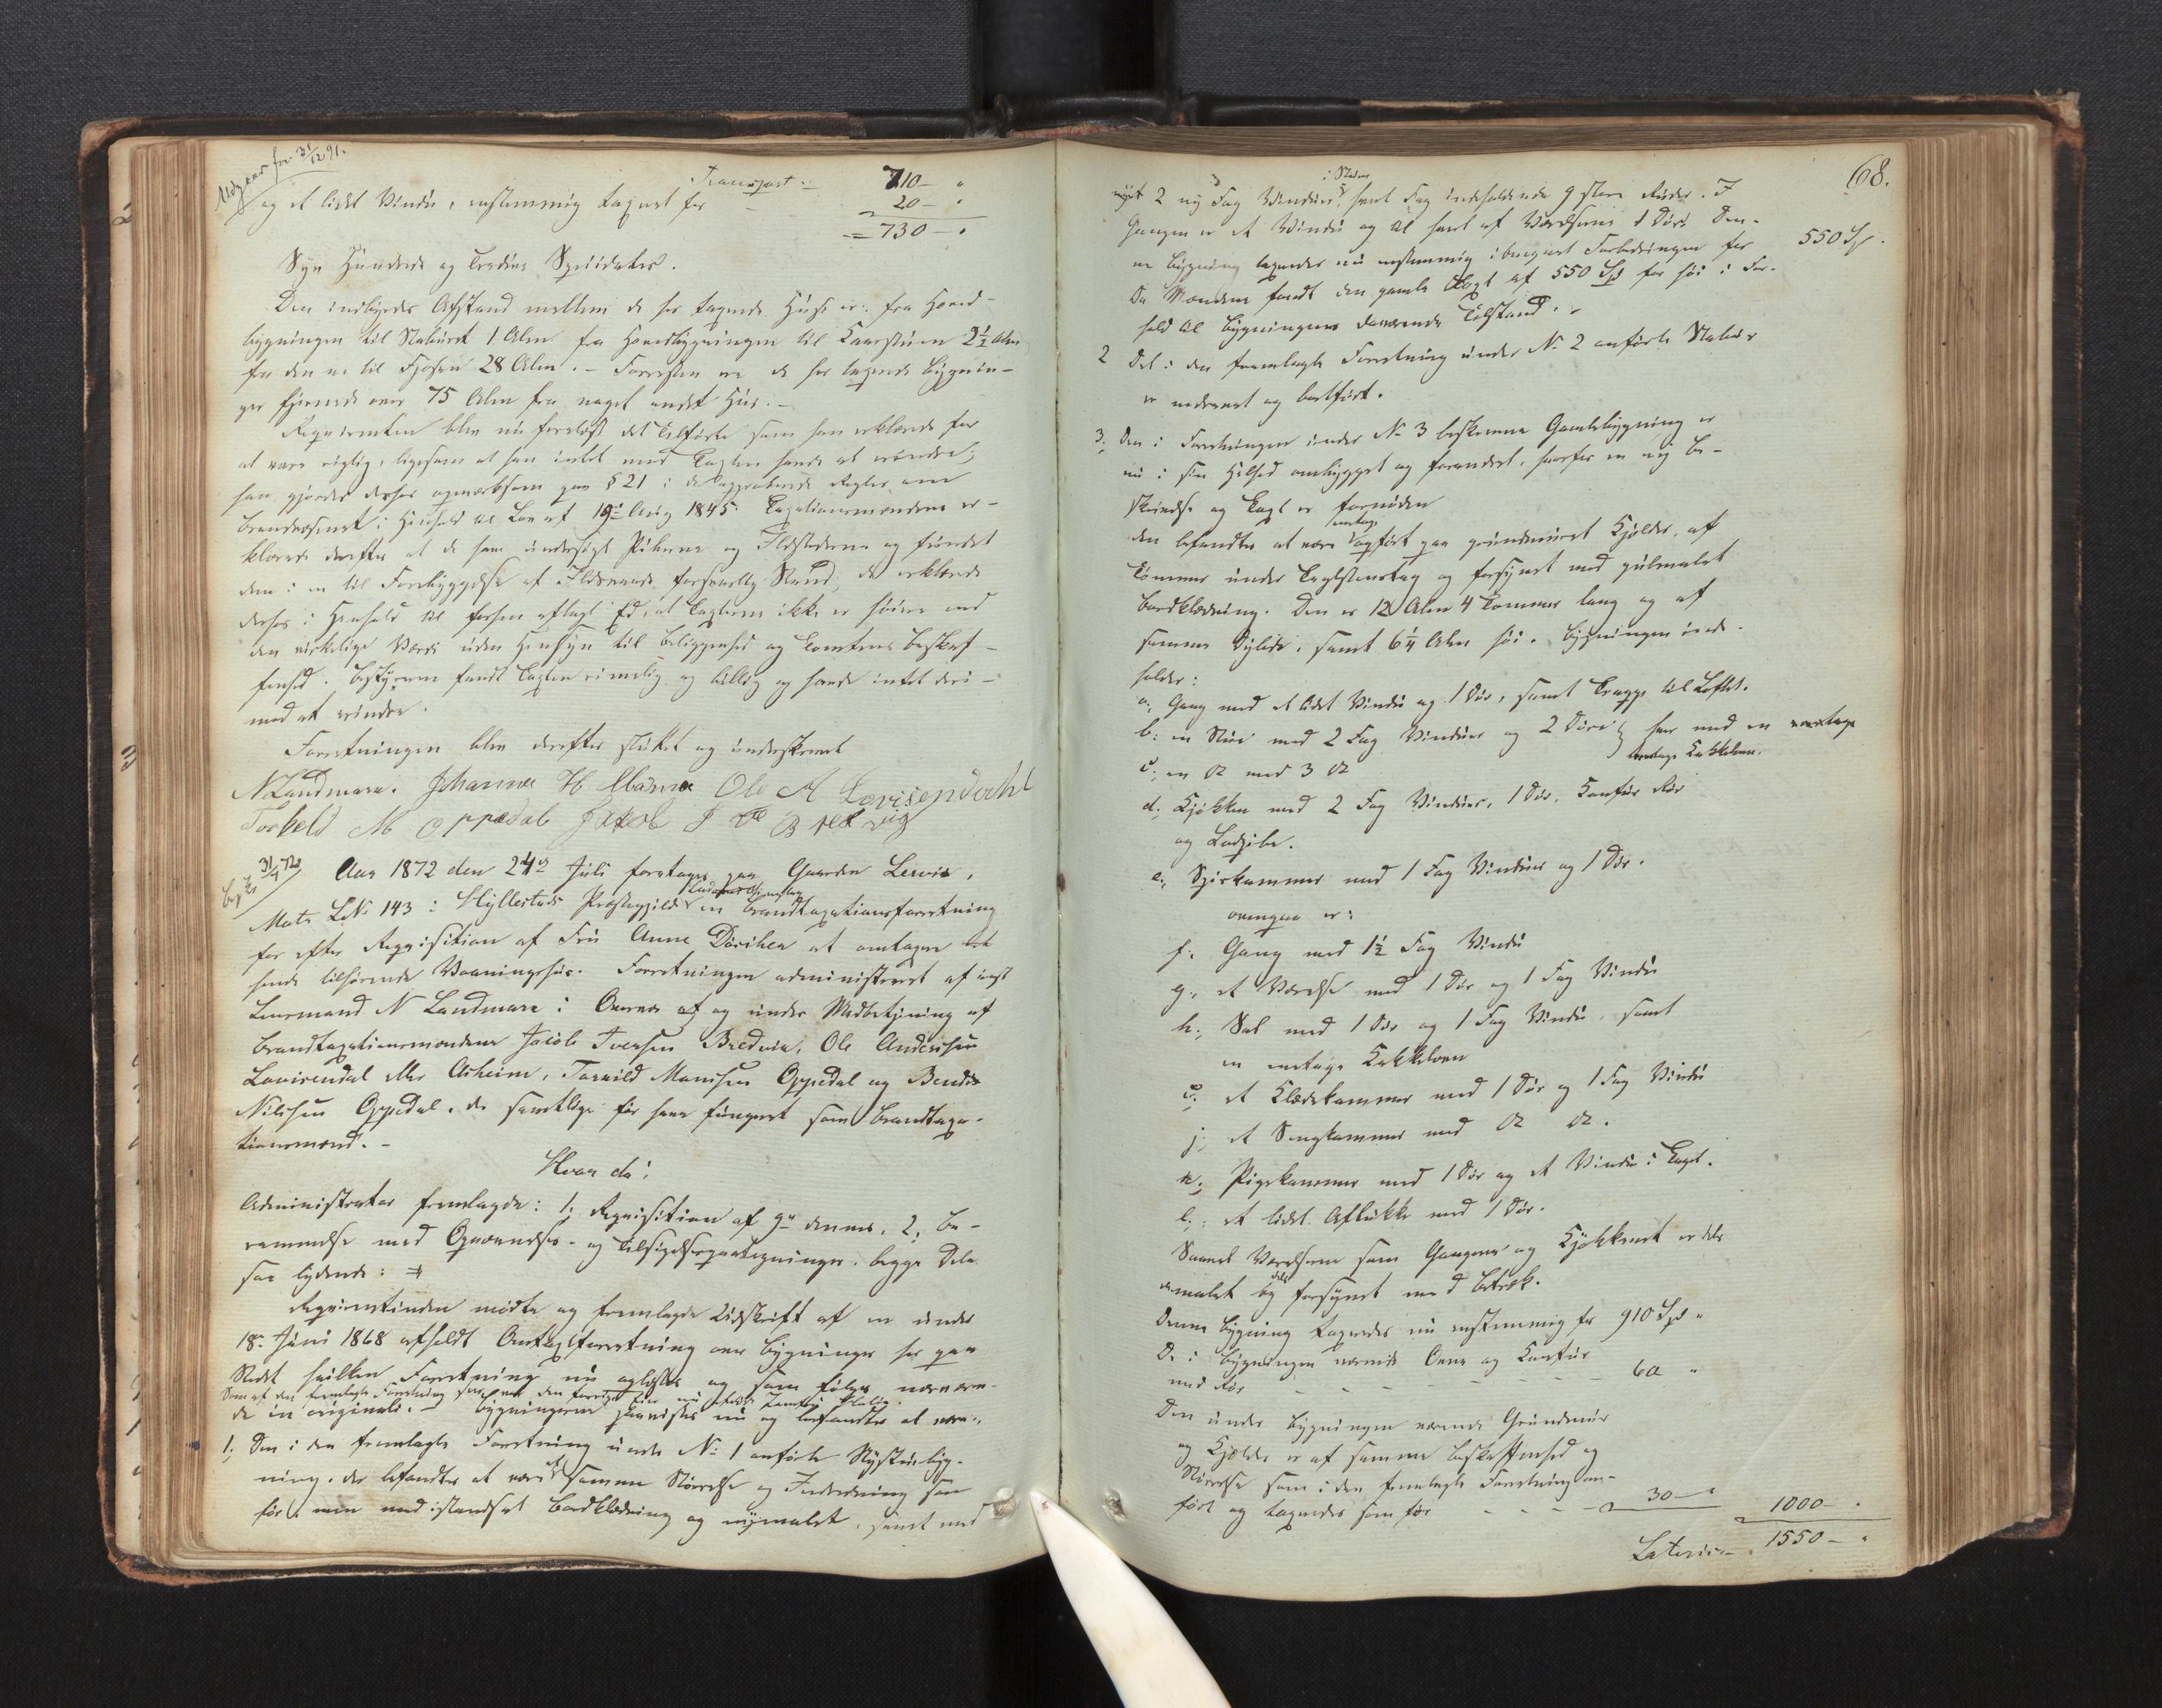 Udgaar fra 31/12 91.
Transport - 710 - "
og et lidet Vindu, enstemmig taxeret for - 20 - "
= 730 - "
Syv Hundrede og Tredive Speciedaler.
Den indbyrdes Afstand mellem de her taxerede Huse er: fra Hoved-
bygningen til Staburet 1 Alen fra Hovedbygningen til Kaarstuen 2½ Alen
fra den ne til Fjosen 28 Alen. - Forresten ere de her taxerede Bygnin-
ger fjernede over 75 Alen fra noget andet Hus. -
Requirenten blev nu forelæst det Tilførte som han erklærede for
at være rigtig, ligesom at han intet mod Taxten havde at erindre;
han gjordes derhos opmærksom paa § 21 i de approberede Regler om
Brandvæsenet i Henhold til Lov af 19de Aug 1845. Taxationsmændene er-
klærede derefter at de have undersøgt Piberne og Ildstederne og fundet
dem i en til Forebyggelse af Ildsvaade forsvarlig Stand, de erklærede
derhos i Henhold til forhen aflagt Ed, at Taxterne ikke er høiere end
den virkelige Værdi uden Hensyn til Beliggenhed og Tomtens Beskaf-
fenhed. Bestyreren fandt Taxten rimelig og billig og havde intet der-
mod at erindre.
Forretningen blev derefter sluttet og underskrevet
N Landmark. Johannes H Ole A Lovisendahl
Torkeld M Oppedal Jakob I Bredvig
31/7 72
Aar 1872 den 24de Juli foretages paa Gaarden Lervik,
Matr. L.No 143 i Hyllestads Præstegjeld en Brandtaxationsforretning
for efter Reqvisition af Fru Anne Dørihea at omtaxere det
hende tilhørende Vaaningshus. Forretningen administreret af
Lensmand N Landmark i Overvær af og under Medbetjening af
Brandtaxationsmændene Jacob Iversen Bredvik, Ole Andersen
Lovisendal eller Aaheim, Torkild Monsen Oppedal og Bendik
Nilssen Oppedal, de samtlige før have fungeret som Brandtaxa-
tionsmænd. -
Hvor da:
Administrator fremlagde: 1; Reqvisition af 9de dennes, 2; Be-
rammelse med Opnævnelses- og Tilsigelsespaategninger, begge Dele
saa lydende:
Reqvirentinden mødte og fremlagde Udskrift af en under
18de Juni 1868 afholdt Omtaxtforretning over Bygninger her paa
Stedet hvilken Forretning nu oplæstes og som følger nærværen-
de in originali. - Bygningerne paavistes nu og befandtes at være:
1; Den i den fremlagte Forretning under No 1 anførte Nystuebyg-
ning, der befandtes at være af samme Størrelse og Indredning som
før, men med istandsat Bordklædning og nymalet, samt med
68.
nyt 2 ny Fag Vinduer i Stuen, hvert Fag indeholdende 9 store Ruder. I
Gangen er et Vindu og til hvert af Værelserne 1 Dør. Den-
ne Bygning taxeredes nu enstemmig iberegnet Forbedringen for 550 Spd.
da Mændene fandt den gamle Taxt af 550 Spd for høi i For-
hold til Bygningens daværende Tilstand.
2 Det i den fremlagte Forretning under No 2 anførte Stabur
er nedrevet og bortført.
3; Den i Forretningen under No 3 beskrevne Gamlebygning er
nu i sin Helhed ombygget og forandret, hvorfor en ny Be-
skrivelse og Taxt er fornøden
den befandtes at være opført paa grundmuret Kjælder, af
Tømmer under Taglstenstag og forsynet med gulmalet
Bordklædning. Den er 12 Alen 4 Tommer lang og af
samme Dybde, samt 6¼ Alen høi. Bygningen inde-
holder:
a; Gang med et lidet Vindu og 1 Dør, samt Trappe til Loftet.
b; en Stue med 2 Fag Vinduer og 2 Døre, hver med en
c; en do med 3 do etages Kakkelovn.
d; Kjøkken med 2 Fag Vinduer, 1 Dør, Komfur Rør
og Bageovn.
e; Spiskammer med 1 Fag Vinduer og 1 Dør.
ovenpaa er:
f. Gang med 1½ Fag Vindu
g; et Værelse med 1 Dør og 1 Fag Vindu
h; Sal med 1 Dør og 1 Fag Vindu, samt
en etages Kakkelovn
i; et Klædekammer med 1 Dør og 1 Fag Vindu
j; et Sengkammer med do do.
k; Pigekammer med 1 Dør og et Vindu i Taget.
l; et lidet Aflukke med 1 Dør.
Saavel Værelserne som Gangene og Kjøkkenet er dels
omalet og dels forsynet med Betræk.
Denne Bygning taxeredes nu enstemmig for 910 Spd "
De i Bygningen værende Ovne og Komfur
med Rør - - - - - - 60 "
Den under Bygningen værende Grundmur
og Kjælder er af samme Beskaffenhed og
Størrelse som i den fremlagte Forretning an-
ført og taxeredes som før - - - - 30 - " 1000 - "
Lateris - 1550 - "